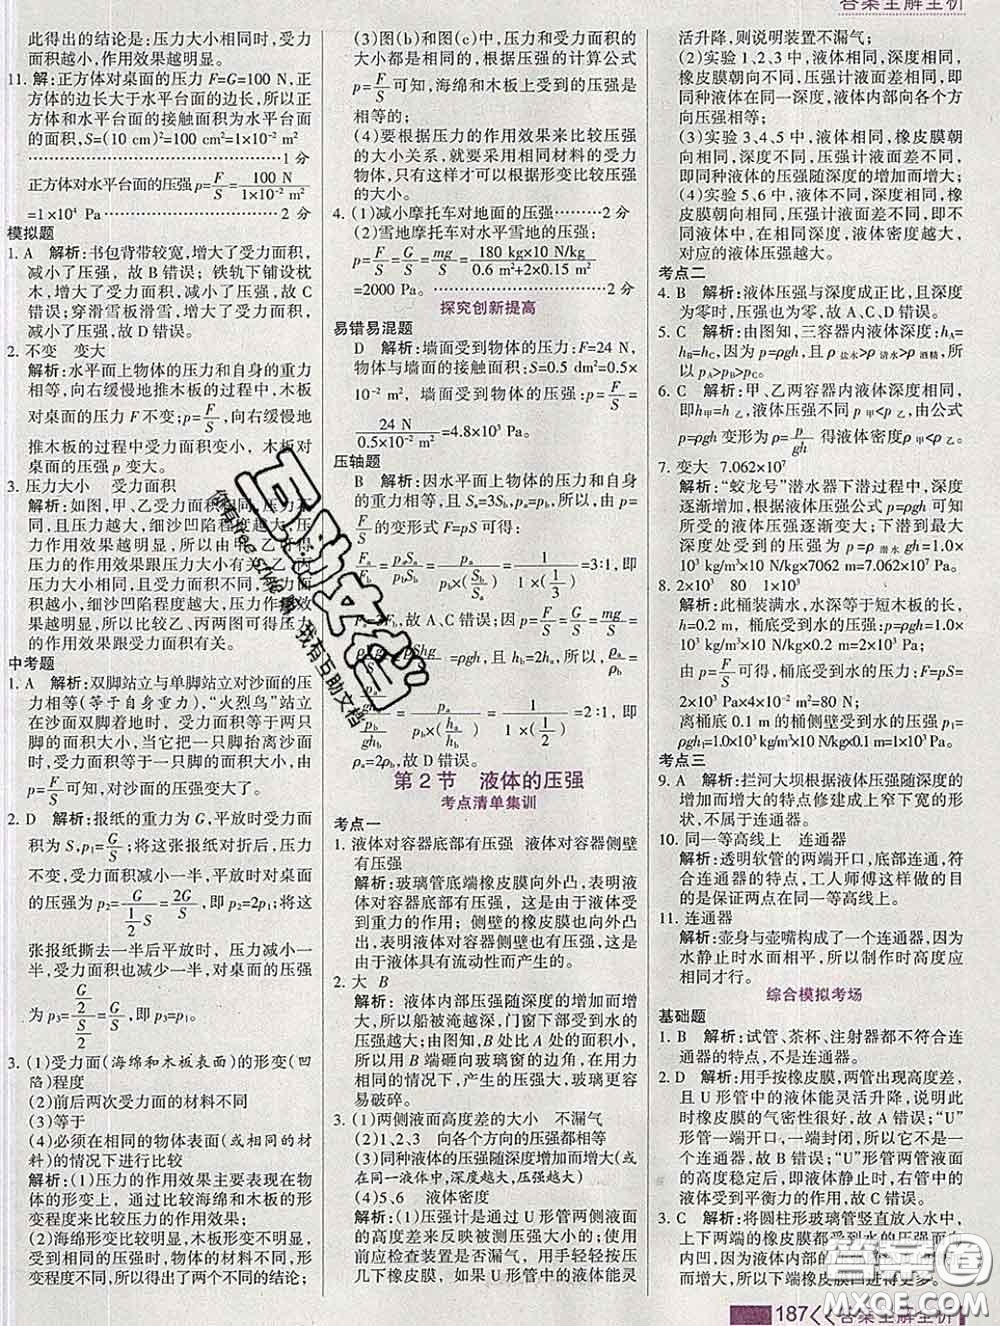 答案全解全析
此得出的结论是:压力大小相同时,受力
面积越小,作用效果越明显。
11. 解:正方体对桌面的压力 F=G=100 N,正
方体的边长大于水平台面的边长,所以正
方体和水平台面的接触面积为水平台面
的面积,S=(10 cm)²=100 cm²=1×10⁻² m²
1 分
正方体对水平台面的压强 p=F/S=100 N/1×10⁻² m²
=1×10⁴ Pa 2 分
模拟题
1. A 解析:书包背带较宽,增大了受力面积,
减小了压强,故 B 错误;铁轨下铺设枕
木,增大了受力面积,减小了压强,故 C
错误;穿滑雪板滑雪,增大了受力面积,
减小了压强,故 D 错误。
2. 不变 变大
解析:水平面上物体的压力和自身的重力
相等,向右缓慢地推木板的过程中,木板
对桌面的压力 F 不变;p=F/S,向右缓慢地
推木板的过程中受力面积变小,木板对
桌面的压强 p 变大。
3. 压力大小 受力面积
解析:如图,甲、乙受力面积相同,压力大小
不同,压力越大,细沙凹陷程度越大,压
力作用效果越明显,所以由甲、乙可得:
压力作用效果跟压力大小有关。乙、丙
压力大小相同,受力面积不同,受力面积
越小,细沙凹陷程度越大,压力作用效果
越明显,所以比较乙、丙两图可得出:压力
的作用效果跟受力面积有关。
中考题
1. A 解析:双脚站立与单脚站立对沙面的压
力相等(等于自身重力),“火烈鸟”站立
在沙面双脚着地时,受力面积等于两只
脚的面积大小,当它把一只脚抬离沙面
时,受力面积变为原来的一半,由公式 p
=F/S 可知,压强大小变为原来的两倍。
2. D 解析:报纸的重力为 G,受力面积
为 S,p₁=G/S;将这张报纸对折后,压力
不变,受力面积变为一半,对桌面的压强
为 p₂=G/(½S)=2G/S,即 p₂=2p₁;将这
张报纸撕去一半后平放时,压力减小一
半,受力面积也减少一半,对桌面的压强
为 p₃=(G/2)/(S/2)=G/S,即 p₃=p₁。
3. (1)受力面(海绵和木板表面)的形变(凹
陷)程度
(2)前后两次受力面的材料不同
(3)等于
(4)必须在相同的物体表面(或相同材料
的情况下)进行比较
解析:(1)压力的作用效果主要表现在物
体的形变上,通过比较海绵和木板的形
变程度来比较压力的作用效果;
(2)海绵形变比较明显,木板形变不明显,
受到相同的压强时,物体的材料不同,形
变程度不同,所以得出了两个不同的结论;
(3)图(b)和图(c)中,压力和受力面积的
大小都是相同的,根据压强的计算公式
p=F/S 可知,海绵和木板上受到的压强是
相等的;
(4)要根据压力的作用效果来比较压强
的大小关系,就要采用相同材料的受力
物体,只有这样才可以根据形变比较压强
的大小。
4. (1)减小摩托车对地面的压强 2 分
(2)雪地摩托车对水平雪地的压强:
p=F/S=G/S=mg/S=180 kg×10 N/kg/0.6 m²+2×0.15 m²
=2000 Pa。 2 分
探究创新提高
易错易混题
D 解析:墙面受到物体的压力:F=24 N,
物体与墙面的接触面积:S=0.5 dm²=0.5×
10⁻² m²,墙面受到物体的压强:p=F/S=
24 N/0.5×10⁻² m²=4.8×10³ Pa。
压轴题
B 解析:因水平面上物体的压力和自身
的重力相等,且 Sₐ=3S_b,pₐ=p_b,所以,由 p=
F/S 的变形式 F=pS 可得:
Fₐ/F_b=pₐSₐ/p_bS_b=pₐ/p_b×(S_b/Sₐ)=1/1×(1/3)=3:1,即
Fₐ=3F_b,故 A、C 错误;因 p=F/S=G/S=mg/S=
=ρShg/S=ρgh,且 h_b=2hₐ,所以,ρₐ/ρ_b=
=pₐ/p_b×(hₐ/h_b)=1/1×(1/2)=2:1,即
ρₐ=2ρ_b,故 B 正确、D 错误。
第 2 节 液体的压强
考点清单集训
考点一
1. 液体对容器底部有压强 液体对容器侧壁
有压强
解析:玻璃管底端橡皮膜向外凸,表明液
体对容器底部有压强,这是由于液体受
到重力的作用;侧壁的橡皮膜向外凸
出,表明液体对容器侧壁有压强,这是由
于液体具有流动性而产生的。
2. 大 B
解析:液体内部压强随深度的增加而增
大,所以船被淹越深,门窗下部受到水的
压强越大;由图知,B 处比 A 处的面积小,
所以用 B 端砸向玻璃窗的边角,在用力
相同的情况下,产生的压强大,玻璃更
容易破碎。
3. (1)两侧液面高度差的大小 不漏气
(2)1、2、3 向各个方向的压强都相等
(3)同种液体的压强随深度增加而增大(或
在同种液体中,深度越大,压强越大)
(4)5、6 液体密度
解析:(1)压强计是通过 U 形管两侧液面
的高度差来反映被测压强大小的,使用
前应检查装置是否漏气,用手轻轻按压
几下橡皮膜,如果 U 形管中的液体能灵
活升降,则说明装置不漏气;
(2)实验 1、2、3 中,液体相同、深度相同,
橡皮膜朝向不同,压强计液面差相同,即
同种液体在同一深度,液体内部向各个方
向压强相等;
(3)实验 3、4、5 中,液体相同,橡皮膜朝
向相同,深度不同,压强计液面差不同,即
同种液体的压强随深度的增加而增大;
(4)实验 5、6 中,液体不同,深度相同,橡
皮膜朝向相同,压强计液面差不同,即不
同液体中,在同一深度,液体密度越大,对
应的液体压强越大。
考点二
4. B 解析:液体压强与深度成正比,且深度
为零时,压强也为零,故 A、C、D 错误。
5. C 解析:由图知,三容器内液体深度:h_A=
h_B=h_C,因为 p=ρgh,且 ρ盐水>ρ清水>ρ酒精,所
以 p_A>p_B>p_C。
6. C 解析:甲、乙两容器内液体深度相同,
即 h甲=h乙,液体压强不同 p甲<p乙,由公式
p=ρgh 变形 ρ=p/gh 得液体密度 ρ甲<ρ乙。
7. 变大 7.062×10⁷
解析:“蛟龙号”潜水器下潜过程中,深度
逐渐增加,根据液体压强公式 p=ρgh 可
知所受的液体压强逐渐变大;下潜到最大
深度处受到的压强为 p=ρ潜水gh=1.0×
10³ kg/m³×10 N/kg×7062 m=7.062×10⁷ Pa。
8. 2×10³ 80 1×10³
解析:此桶装满水,水深等于短木板的长,
h=0.2 m,桶底受到水的压强 p=ρgh=1.0×
10³ kg/m³×10 N/kg×0.2 m=2×10³ Pa;
由 p=F/S 可得,桶底受到水的压力 F=pS=
2×10³ Pa×4×10⁻² m²=80 N;
离桶底 0.1 m 的桶侧壁受到水的压强 p₁=
ρgh₁=1.0×10³ kg/m³×10 N/kg×(0.2 m-
0.1 m)=1×10³ Pa。
考点三
9. A 解析:拦河大坝根据液体压强随深度的
增加而增大的特点修建成上窄下宽的形
状,不属于连通器。
10. 同一等高线上 连通器
解析:透明软管的两端开口,底部连通,符
合连通器的特点,工人师傅这样做的目的
是保证两点在同一等高线上。
11. 连通器
解析:壶身与壶嘴构成了一个连通器,当
水静止时水面相平,所以制作时高度应
相同才行。
综合模拟考场
基础题
1. B 解析:试管、茶杯、注射器都不符合连
通器的特点,不是连通器。
2. D 解析:用手按橡皮膜,两管出现高度差,
且 U 形管中的液体能灵活升降,说明此
时橡皮膜的气密性很好,故 A 错误;“U”
形管一端开口,一端封闭,所以它不是一
个连通器,故 B 错误;“U”形管两管液面
的高度稳定后,即液体静止时,右管中的
液体受到平衡力的作用,故 C 错误。
3. C 解析:将圆柱形玻璃管竖直放入水中,
上下两端的橡皮膜都受到水的压强而向
内凹,因为液体内部的压强随深度的增加
而增大,所以下端橡皮膜凹进得更多。
互助文档
我有互助文档
答案圈
MXQE.COM
187 答案全解全析